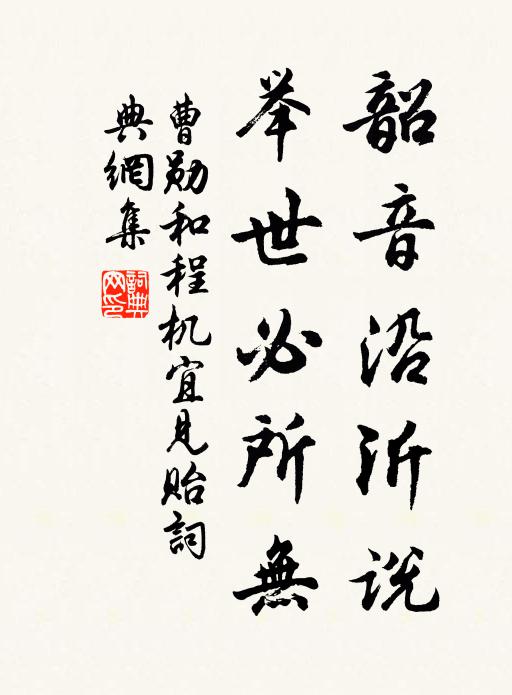 韶音沿沂说
举世必所無
曹勋和程机宜见贻詞
典網集
詞典網印